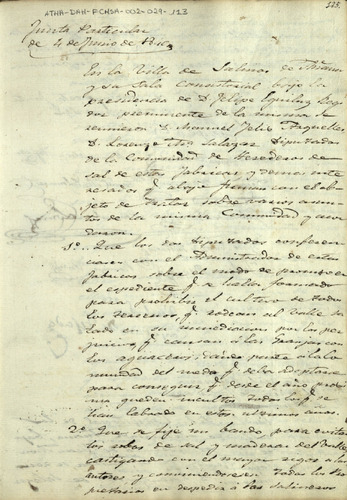 ATHA-DAH-FCNSA-002-029-113
Junta Particular
de 4 de Junio de
En la Villa de Salinas de Añana
y su sala consistorial bajo la
presidencia de D. Felipe Eguiluz Regi
dor preeminente de la misma se
reunieron D. Manuel Felix Arguelles
D. Lorenzo Salazar Diputados
de la Comunidad de Herederos de
sal de estas fabricas y demas inte
resados q.e abajo firman con el ob
jeto de tratar sobre varios asun
tos de la misma Comunidad y acor
daron
1.o Que los dos Diputados conferen
ciasen con el Administrador de estas
fabricas sobre el modo de promover
el expediente q.e se halla formado
para prohibir el cultivo de todos
los terrenos q.e rodean al Valle Sa
lado en sus inmediaciones por los per
juicios q.e causan a las Granjas con
los aguaceros, dando parte a la Co
munidad del medio q.e deba adoptarse
para conseguir q.e desde el año proxi
mo queden incultos todos los q.e se
han labrado en estos ultimos años.
2.o Que se fije un bando para evitar
los robos de sal y maderas del Valle
castigando con el mayor rigor a los
autores y conviniendose en todos los Pro
pietarios en despedir a las Salineros